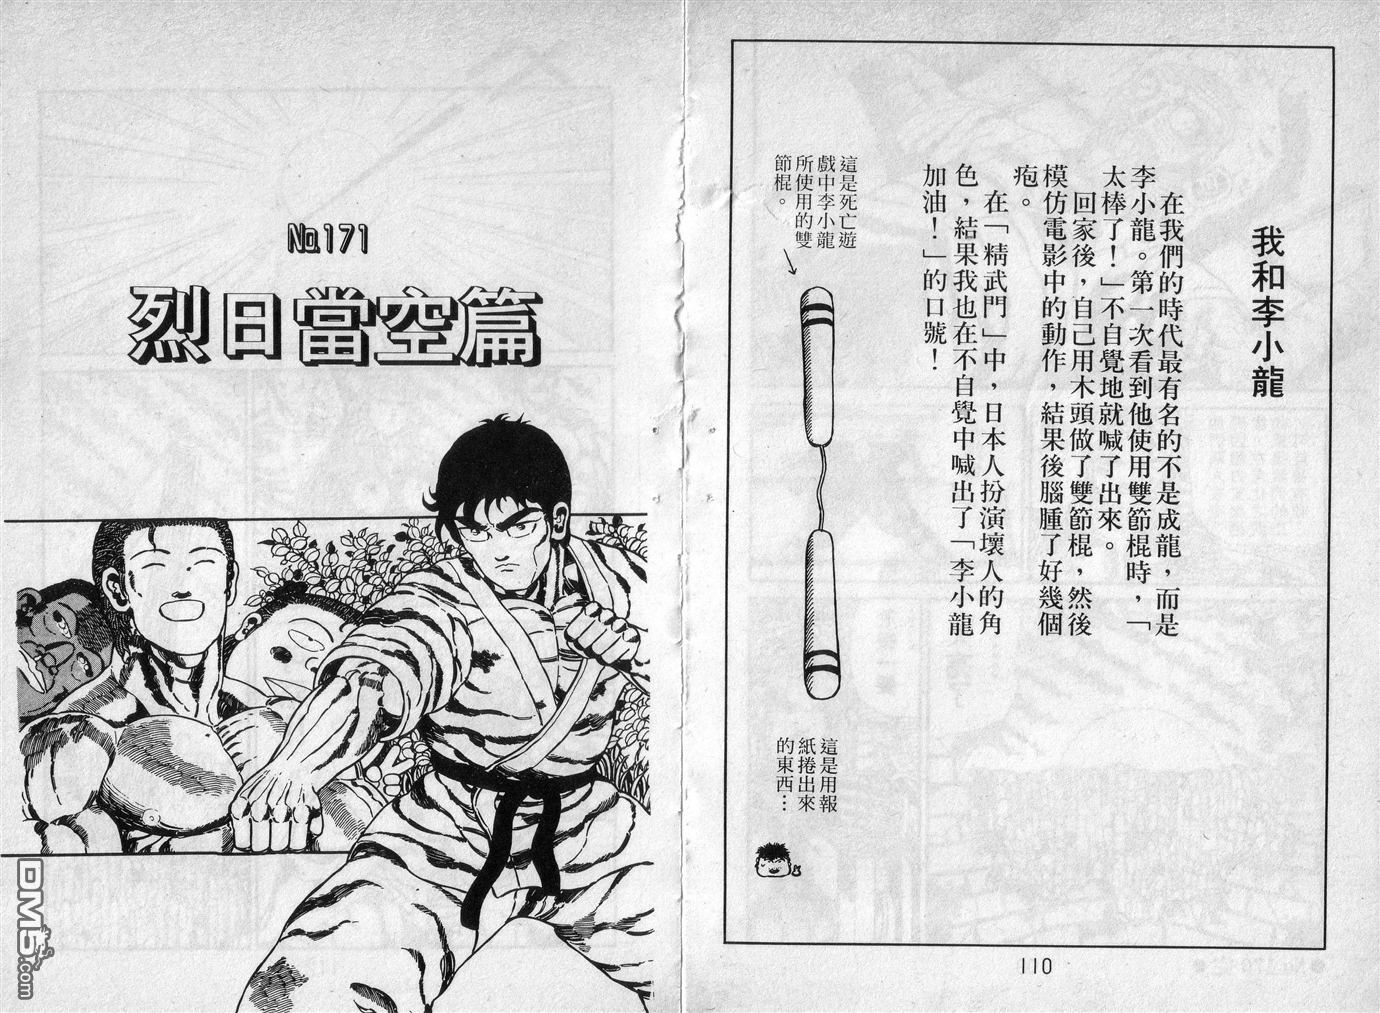 我和李小龍
在我們的時代最有名的不是成龍，而是
李小龍。第一次看到他使用雙節棍時，「
太棒了！」不自覺地就喊了出來。
回家後，自己用木頭做了雙節棍，然後
模仿電影中的動作，結果後腦腫了好幾個
疱。
在「精武門」中，日本人扮演壞人的角
色，結果我也在不自覺中喊出了「李小龍
加油！」的口號！
這是死亡遊
戲中李小龍
所使用的雙
節棍。
這是用報
紙捲出來
的東西…
110
No.171
烈日當空篇
DM5.com